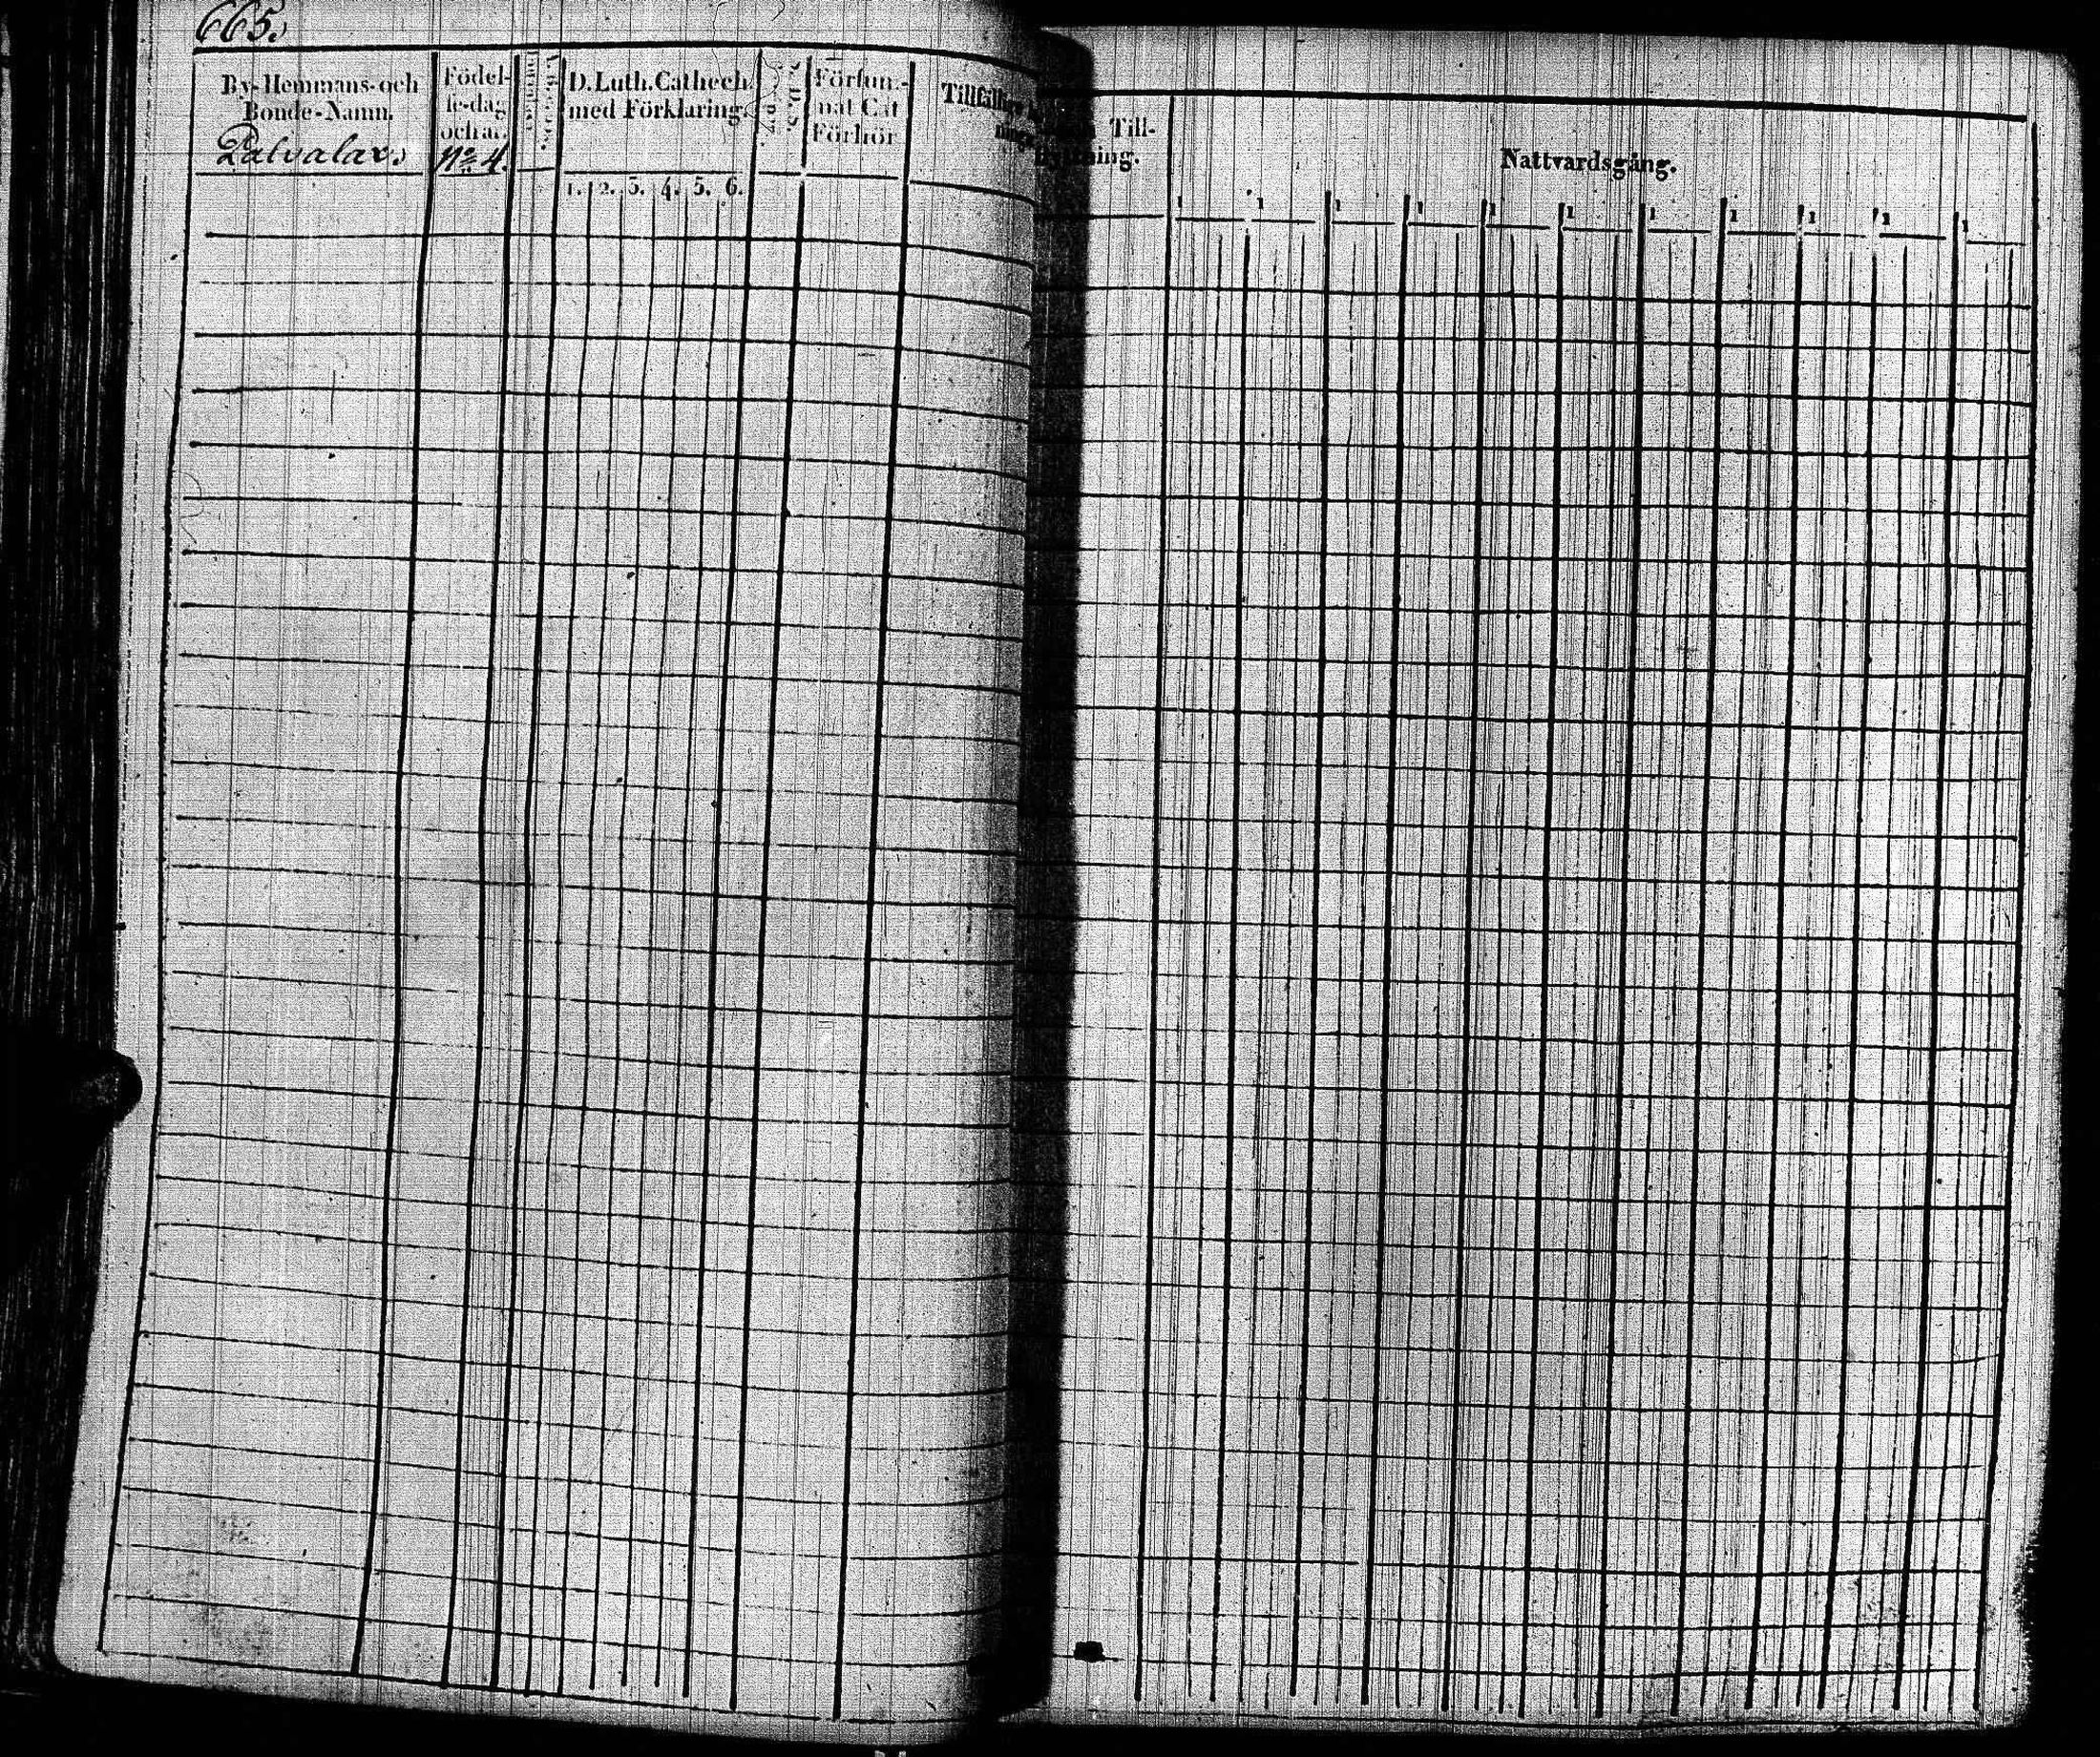 665.
By-Hemmans- och
Bonde-Namn.
Palvalax.
Födel-
se-dag
och år.
No 4.
D. Luth. Cathech.
med Förklaring.
1. 2. 3. 4. 5. 6.
Försum-
mat Cat
Förhör
Tillfällige
Till-
flyttning.
Nattvardsgång.
1 1 1 1 1 1 1 1 1 1